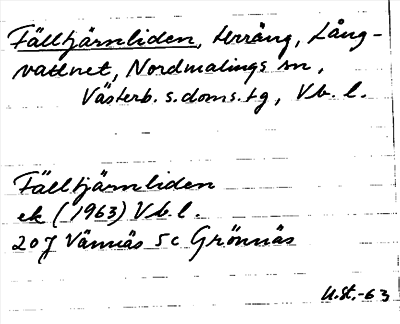 Fälltjärnliden, terräng, Lång-
vattnet, Nordmalings sn,
Västerb. s. doms. tg, Vb. l.
Fälltjärnliden
ek (1963) Vb. l.
20 J Vännäs 5 c Grönnäs
U.St.-63